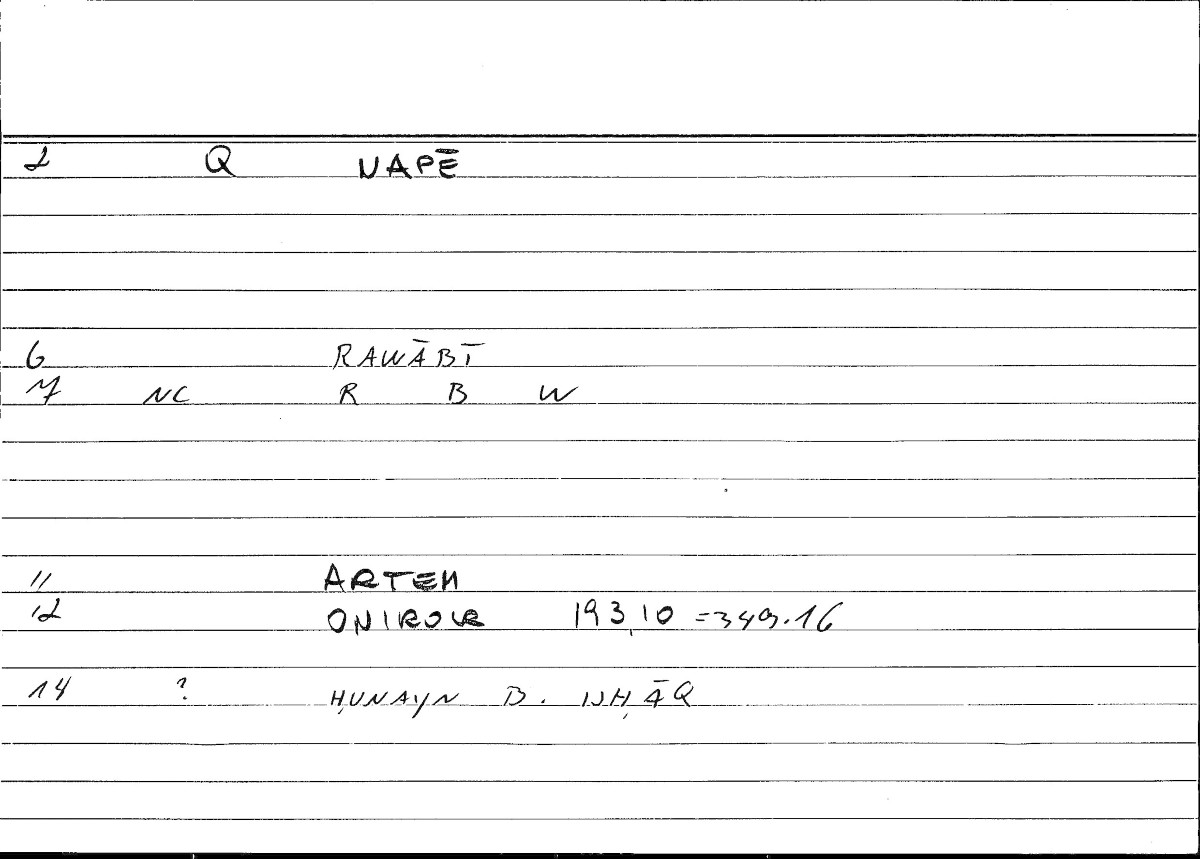 2 Q NAPĒ
6 RAWĀBĪ
7 NC R B W
11 ARTEM
12 ONIROCR 193,10 =349.16
14 ? ḤUNAYN B. ISḤĀQ